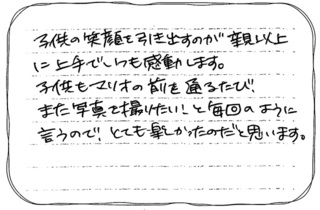 子供の笑顔を引き出すのが親以上
に上手でいつも感動します。
子供もマリオの前を通るたび!
また写真を撮りたい!と毎回のように
言うので!とても楽しかったのだと思います。